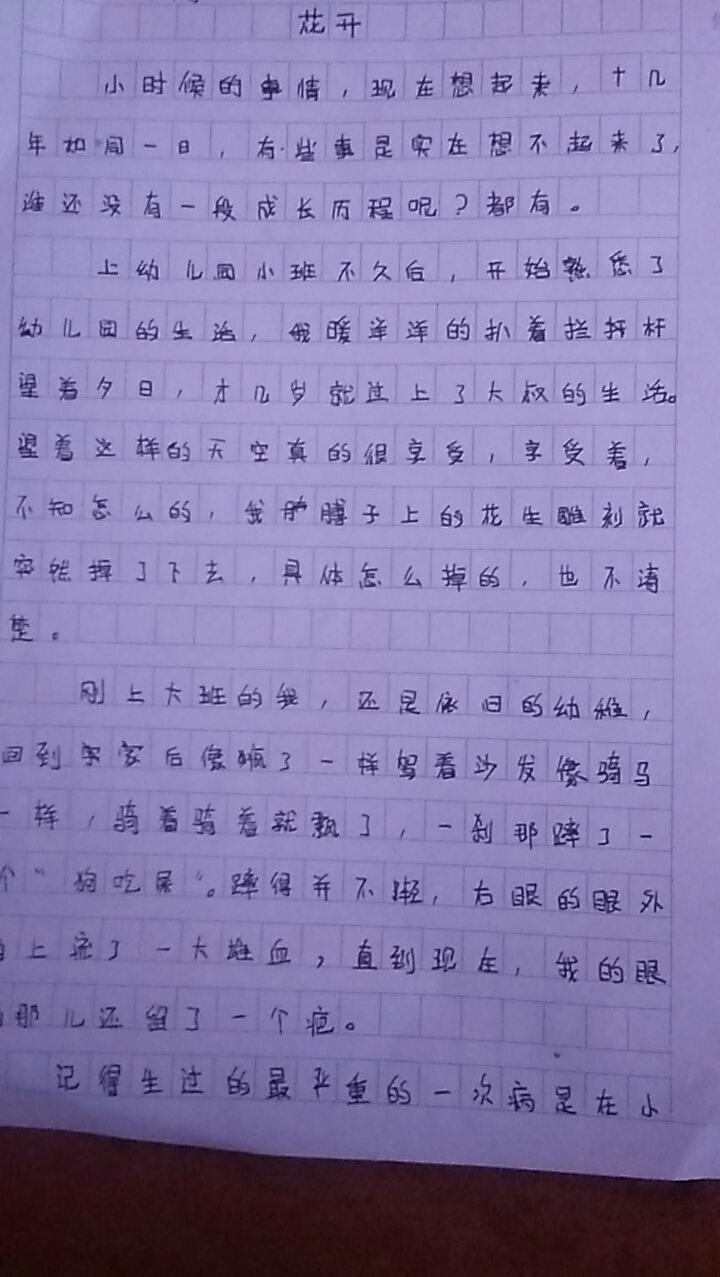 花开
小时候的事情，现在想起来，十几
年如同一日，有些事是实在想不起来了，
谁还没有一段成长历程呢？都有。
上幼儿园小班不久后，开始熟悉了
幼儿园的生活，我暖洋洋的扒着拦杆
望着夕日，才几岁就过上了大叔的生活。
望着这样的天空真的很享受，享受着，
不知怎么的，我脖子上的花生雕刻就
突然掉了下去，具体怎么掉的，也不清
楚。
刚上大班的我，还是依旧的幼稚，
回到家后像疯了一样驾着沙发像骑马
一样，骑着骑着就飘了，一刹那蹿了一
个“狗吃屎”。蹿得并不轻，右眼的眼外
上流了一大堆血，直到现在，我的眼
那儿还留了一个疤。
记得生过的最严重的一次病是在小